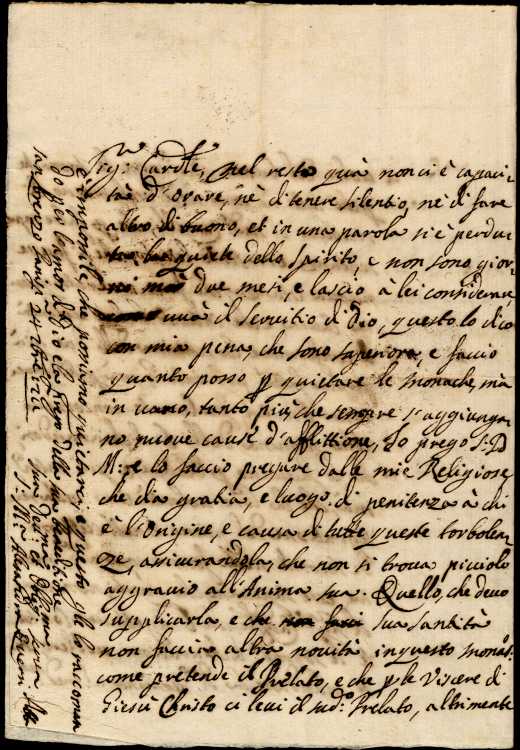 Sig:ra Card:le, Nel resto quà non ci è capaci-
tà d'orare, nè di tenere silentio, nè di fare
altro di buono, et in una parola si è perdu-
ta la quiete dello spirito, e non sono gior-
ni mà due mesi, e lascio à lei considerare,
come và il servitio di Dio, questo lo dico
con mia pena, che sono superiora, e faccio
quanto posso p quietare le monache, mà
in vano, tanto più, che sempre s'aggiungo-
no nuove cause d'afflittione, Io prego S: D
M: e lo faccio pregare dalle mie Religiose
che dia gratia, e luogo di penitenza à chi
è l'origine, e causa di tutte queste torbolen-
ze, assicurandola, che non si trova picciolo
aggravio all'Anima sua. Quello, che devo
supplicarla, e che sua santità
non faccia altra novità in questo monas:
come pretende il Prelato, e che p le Viscere di
Giesù Christo ci levi il sud:o Prelato, altrimente
è impossibile, che possiamo quietarci, e questo glie lo raccoman
do per l'amor di Dio e la prego della sua benedittione
San Lorenzo